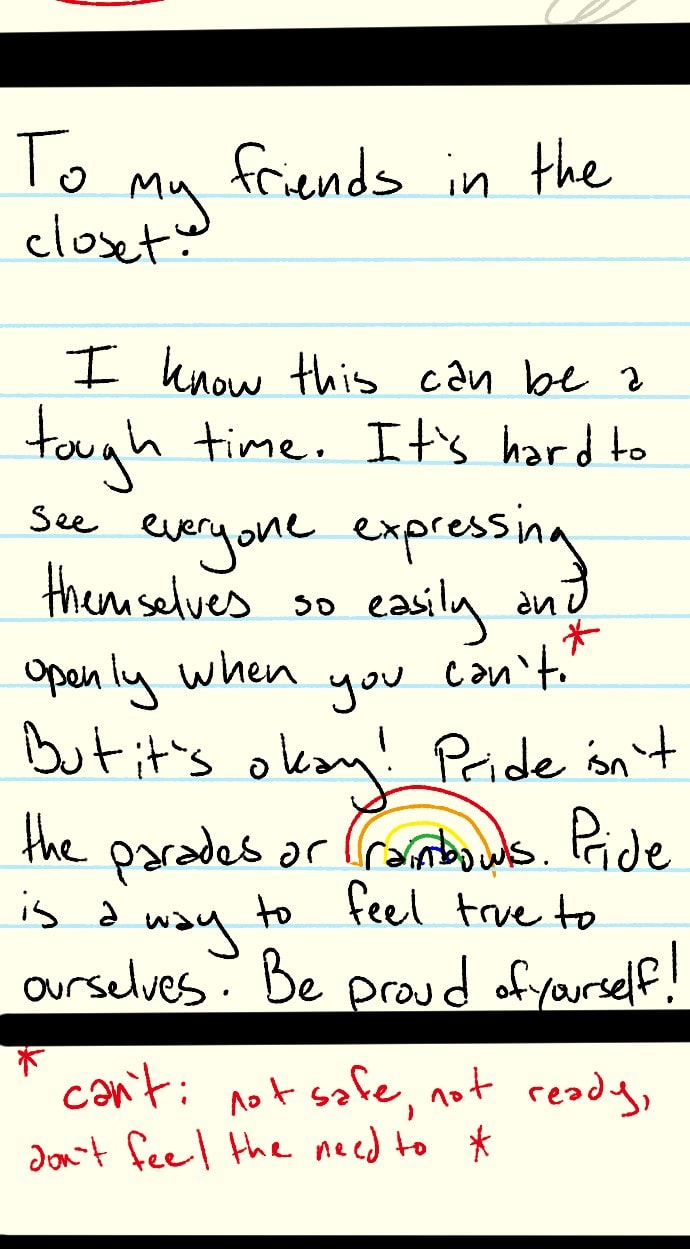 To my friends in the
closet:
I know this can be a
tough time. It's hard to
see everyone expressing
themselves so easily and
openly when you can't.*
But it's okay! Pride isn't
the parades or rainbows. Pride
is a way to feel true to
ourselves. Be proud of yourself!
* can't: not safe, not ready,
don't feel the need to *